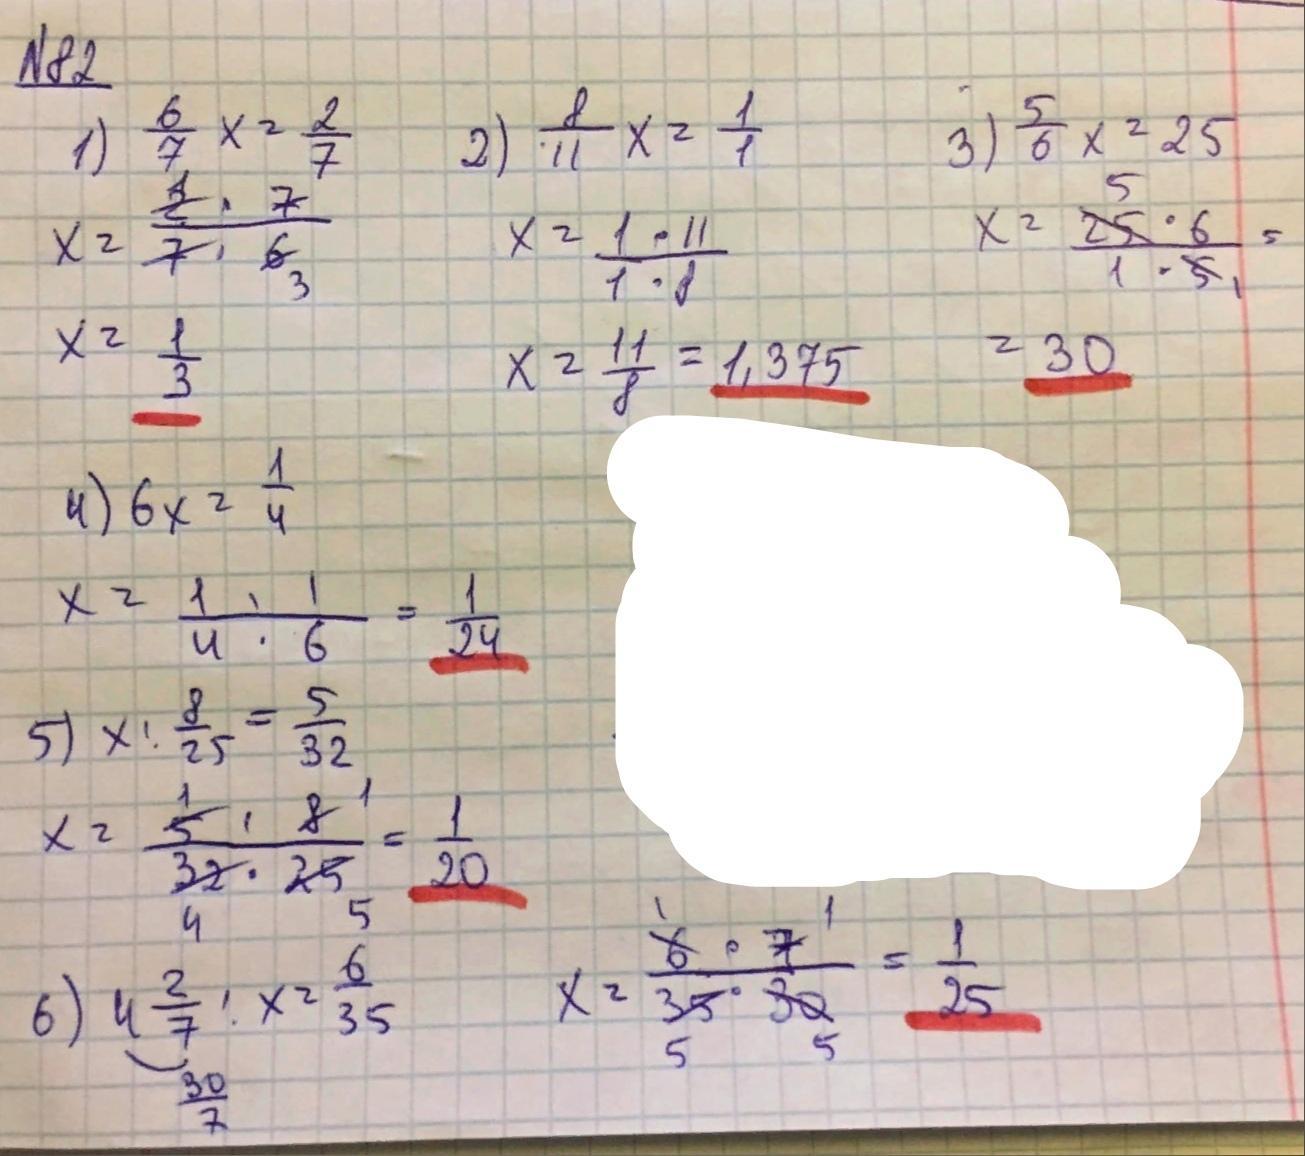 N82
1) 6/7 x = 2/7
x = 2 1 · 7 / 7 · 6 3
x = 1/3
2) 8/11 x = 1/1
x = 1 · 11 / 1 · 8
x = 11/8 = 1,375
3) 5/6 x = 25
x = 25 5 · 6 / 1 · 5 1 =
= 30
4) 6x = 1/4
x = 1 · 1 / 4 · 6 = 1/24
5) x : 8/25 = 5/32
x = 5 1 · 8 1 / 32 4 · 25 5 = 1/20
6) 4 2/7 : x = 6/35
30/7
x = 6 1 · 7 1 / 35 5 · 30 5 = 1/25